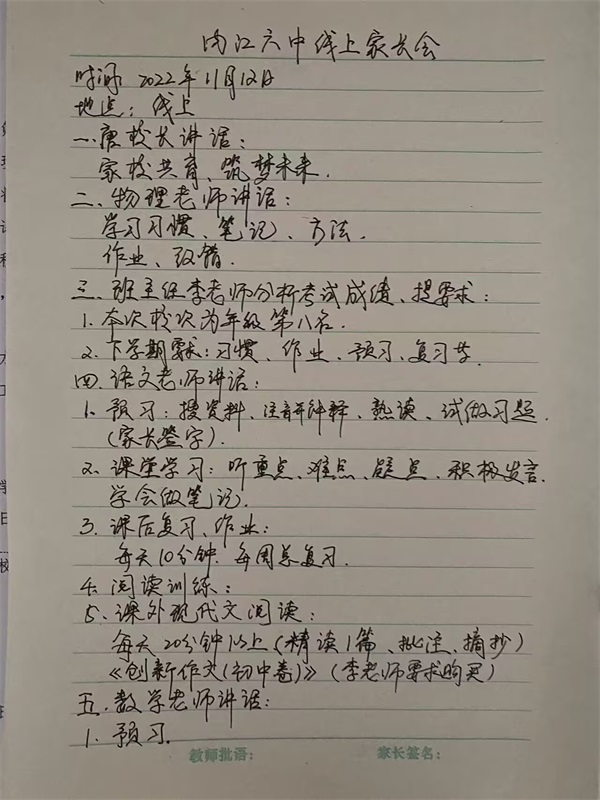 内江六中线上家长会
时间: 2022年11月12日
地点: 线上
一.唐校长讲话:
家校共育、筑梦未来.
二.物理老师讲话:
学习习惯、笔记、方法.
作业、改错.
三.班主任李老师分析考试成绩、提要求:
1.本次核次为年级第八名.
2.下学期要求:习惯、作业、预习、复习等.
四.语文老师讲话:
1.预习:搜资料、注音并钟释、熟读、试做习题.
(家长签字).
2.课堂学习:听重点、难点、疑点、积极发言.
学会做笔记.
3.课后复习、作业:
每天10分钟.每周总复习.
4.阅读训练:
5.课外现代文阅读:
每天20分钟以上(精读1篇、批注、摘抄)
《创新作文(初中卷)》(李老师要求购买)
五.数学老师讲话:
1.预习.
教师批语: 家长签名:
学
日
校